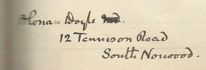 A Conan Doyle
12 Tennison Road
South Norwood.